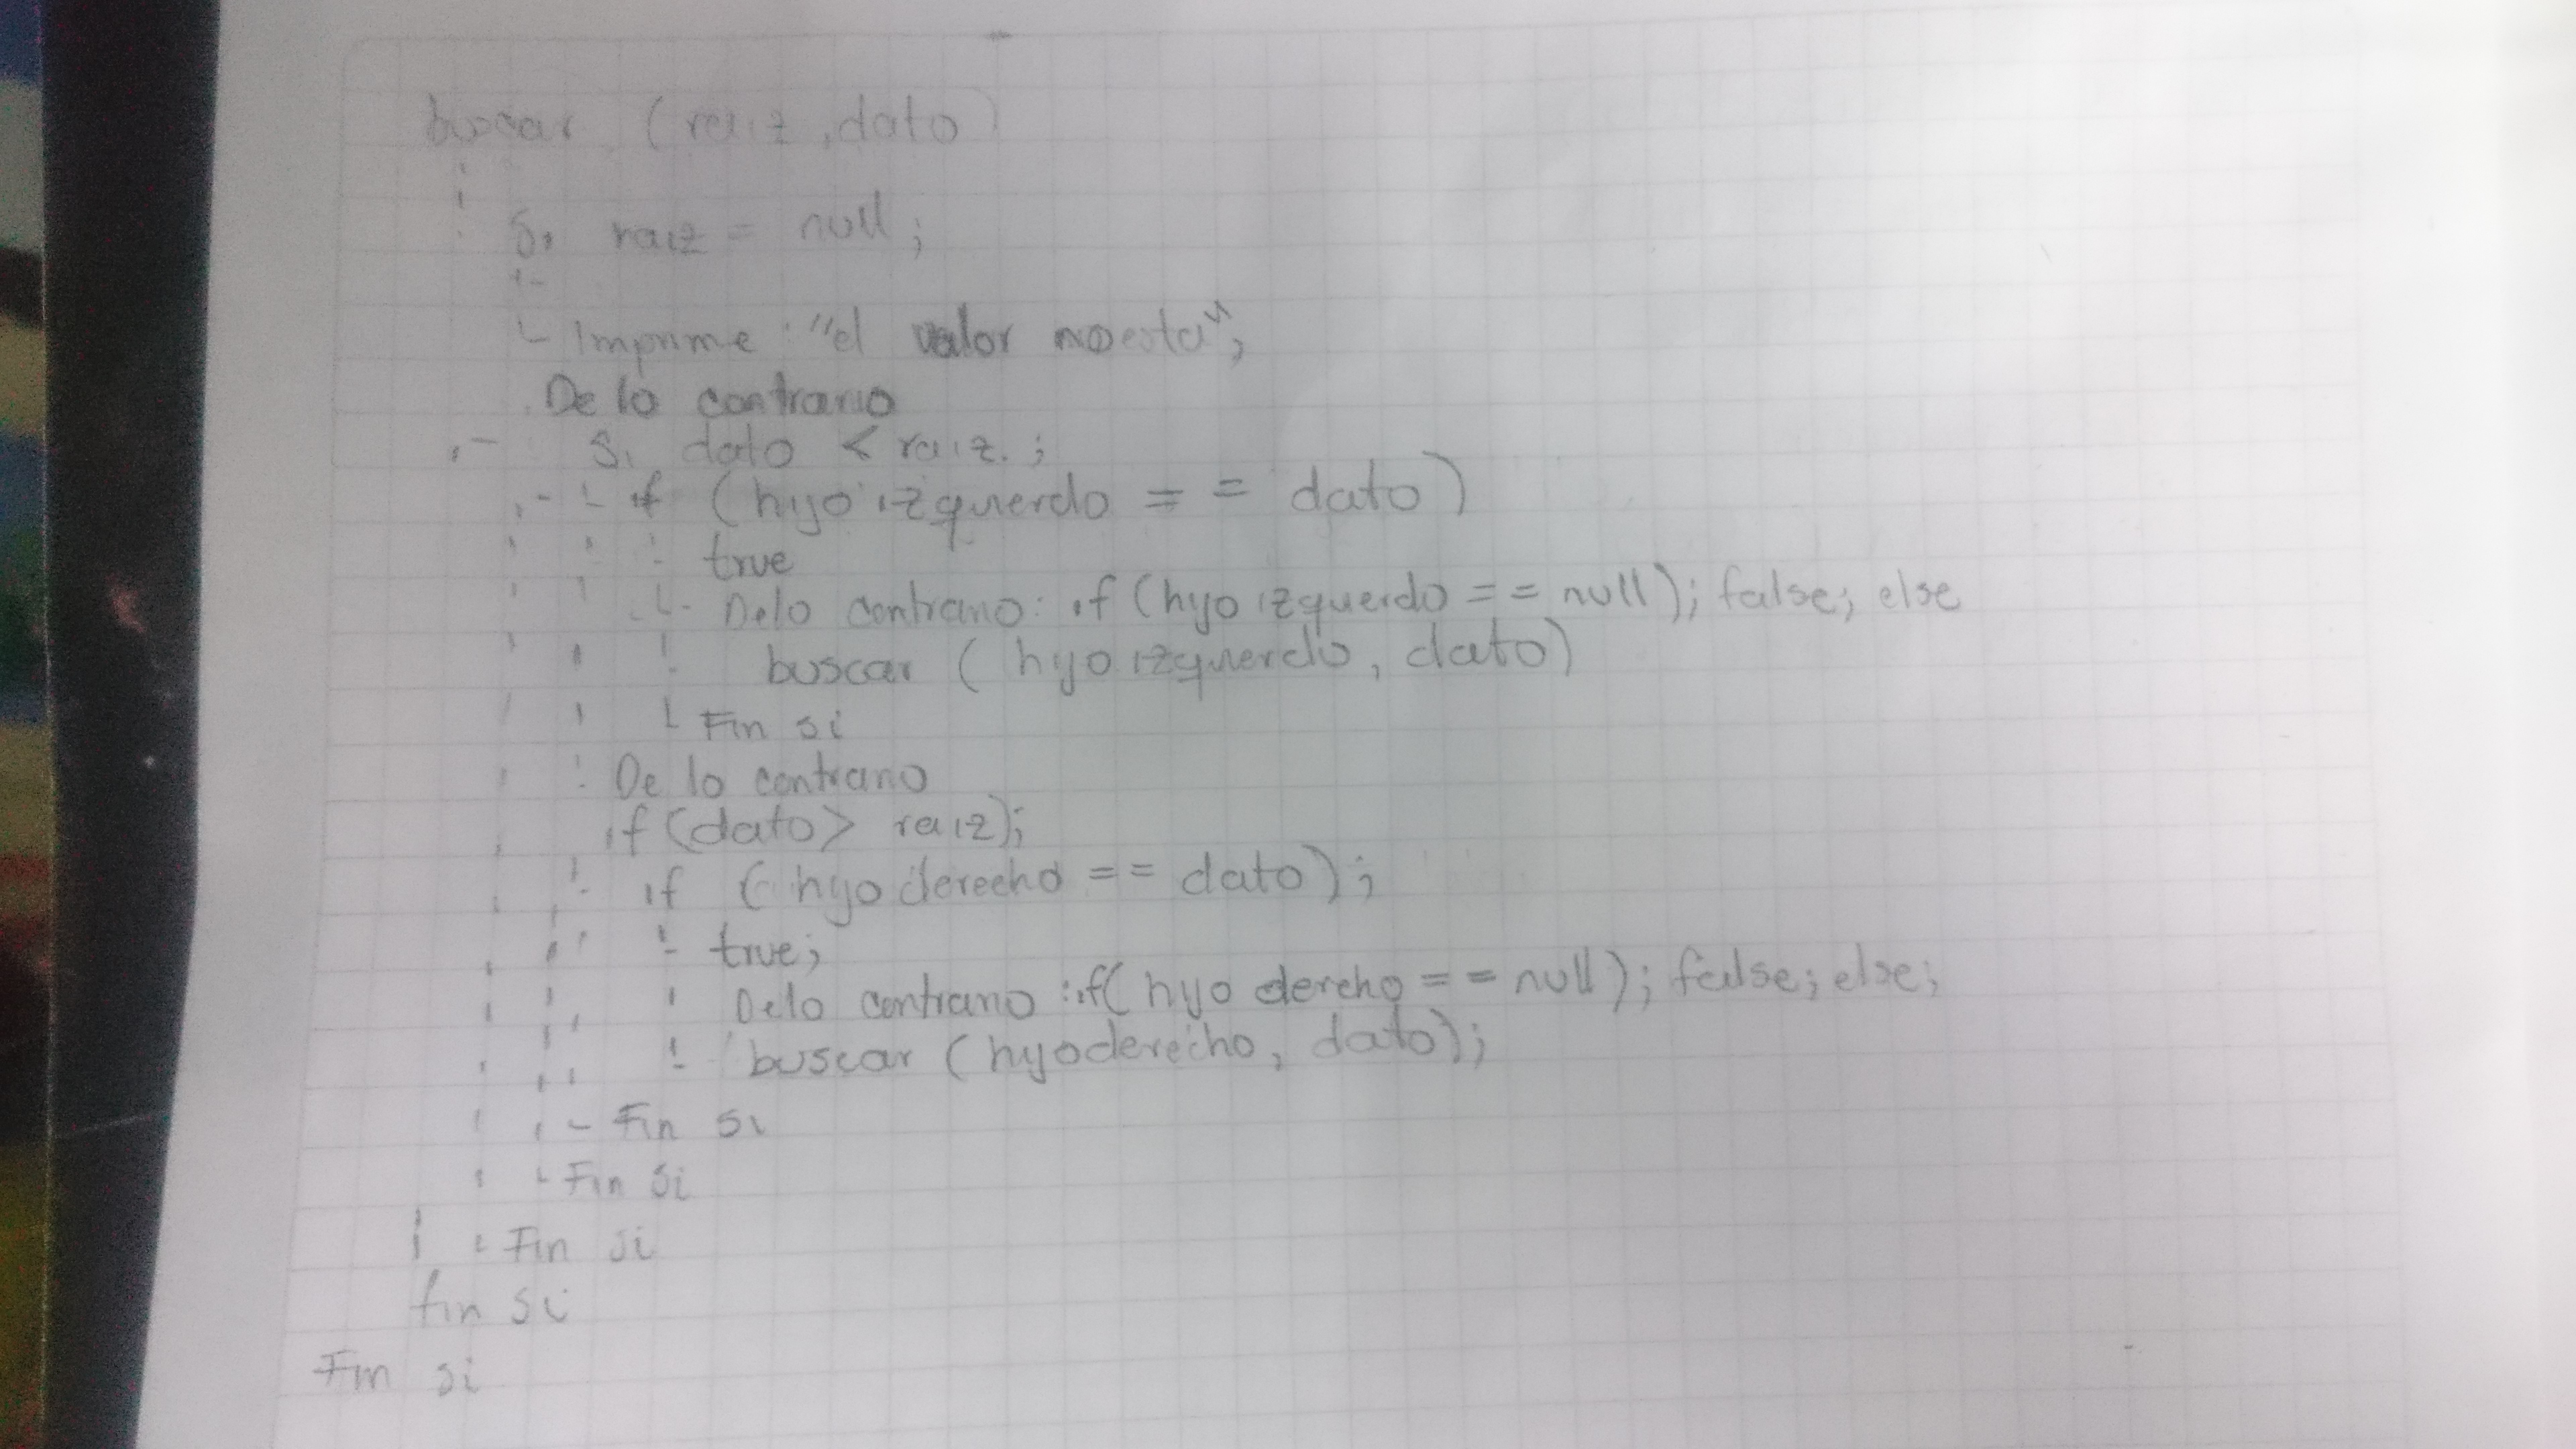 buscar (raiz, dato)
Si raiz = null;
Imprime: "el valor no esta";
De lo contrario
Si dato < raiz.;
if (hijo izquierdo == dato)
true
De lo contrario: if (hijo izquerdo == null); false; else
buscar (hijo izquierdo, dato)
Fin si
De lo contrario
if (dato > raiz);
if (hijo derecho == dato);
true;
De lo contrario: if( hijo dercho == null); false; else;
buscar (hijo derecho, dato);
Fin si
Fin si
Fin si
fin si
Fin si